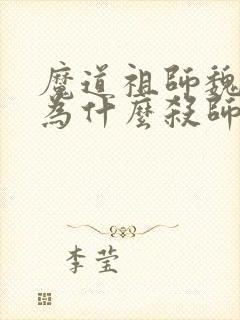 魔道祖師魏
為什麼殺師
李莹